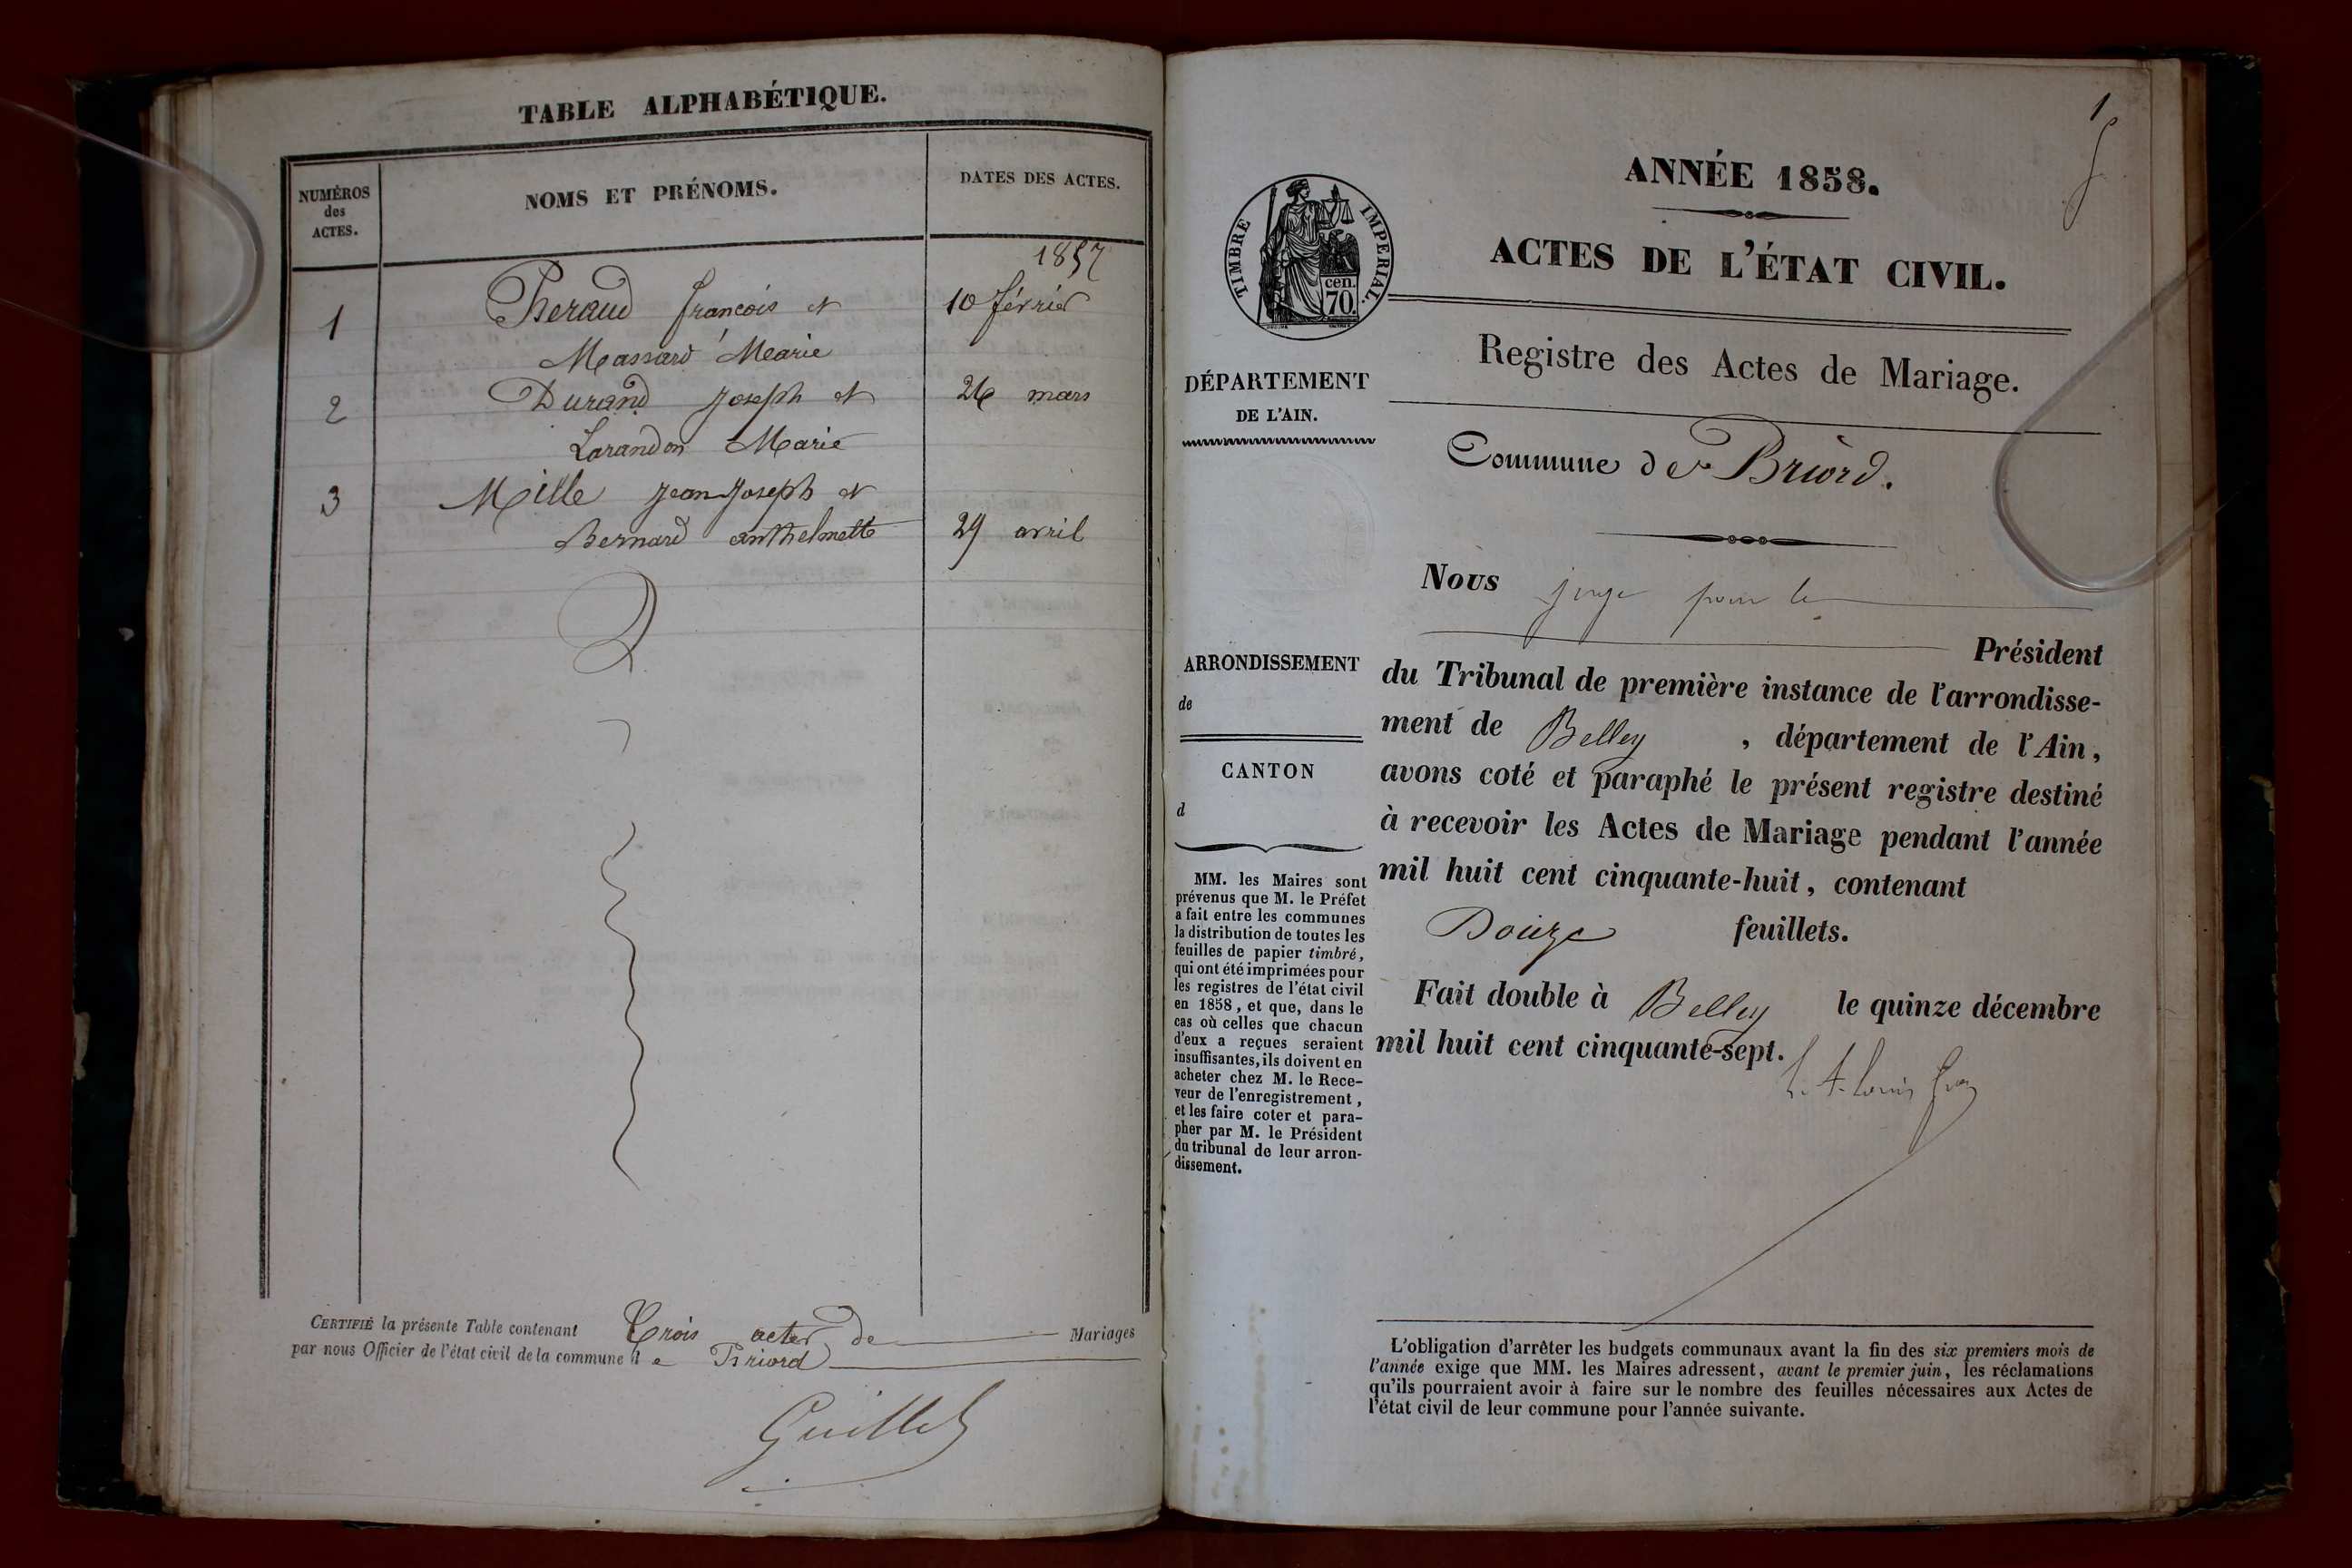 TABLE ALPHABÉTIQUE.
NUMÉROS
des
ACTES.
NOMS ET PRÉNOMS.
DATES DES ACTES.
1857
1 Beraud françois et 10 février
Massard Marie
2 Durand Joseph et 26 mars
Larandon Marie
3 Mille Jean Joseph et
Bernard anthelmette 29 avril
CERTIFIÉ la présente Table contenant Trois actes de Mariages
par nous Officier de l'état civil de la commune de Briord
Guillet
1
ANNÉE 1858.
ACTES DE L'ÉTAT CIVIL.
TIMBRE IMPERIAL.
cen.
70.
Registre des Actes de Mariage.
DÉPARTEMENT
DE L'AIN.
Commune de Briord.
Nous juge pour le
Président
du Tribunal de première instance de l'arrondisse-
ment de Belley , département de l'Ain,
avons coté et paraphé le présent registre destiné
à recevoir les Actes de Mariage pendant l'année
mil huit cent cinquante-huit, contenant
Douze feuillets.
Fait double à Belley le quinze décembre
mil huit cent cinquante-sept.
ARRONDISSEMENT
de
CANTON
d
MM. les Maires sont
prévenus que M. le Préfet
a fait entre les communes
la distribution de toutes les
feuilles de papier timbré,
qui ont été imprimées pour
les registres de l'état civil
en 1858, et que, dans le
cas où celles que chacun
d'eux a reçues seraient
insuffisantes, ils doivent en
acheter chez M. le Rece-
veur de l'enregistrement,
et les faire coter et para-
pher par M. le Président
du tribunal de leur arron-
dissement.
L'obligation d'arrêter les budgets communaux avant la fin des six premiers mois de
l'année exige que MM. les Maires adressent, avant le premier juin, les réclamations
qu'ils pourraient avoir à faire sur le nombre des feuilles nécessaires aux Actes de
l'état civil de leur commune pour l'année suivante.